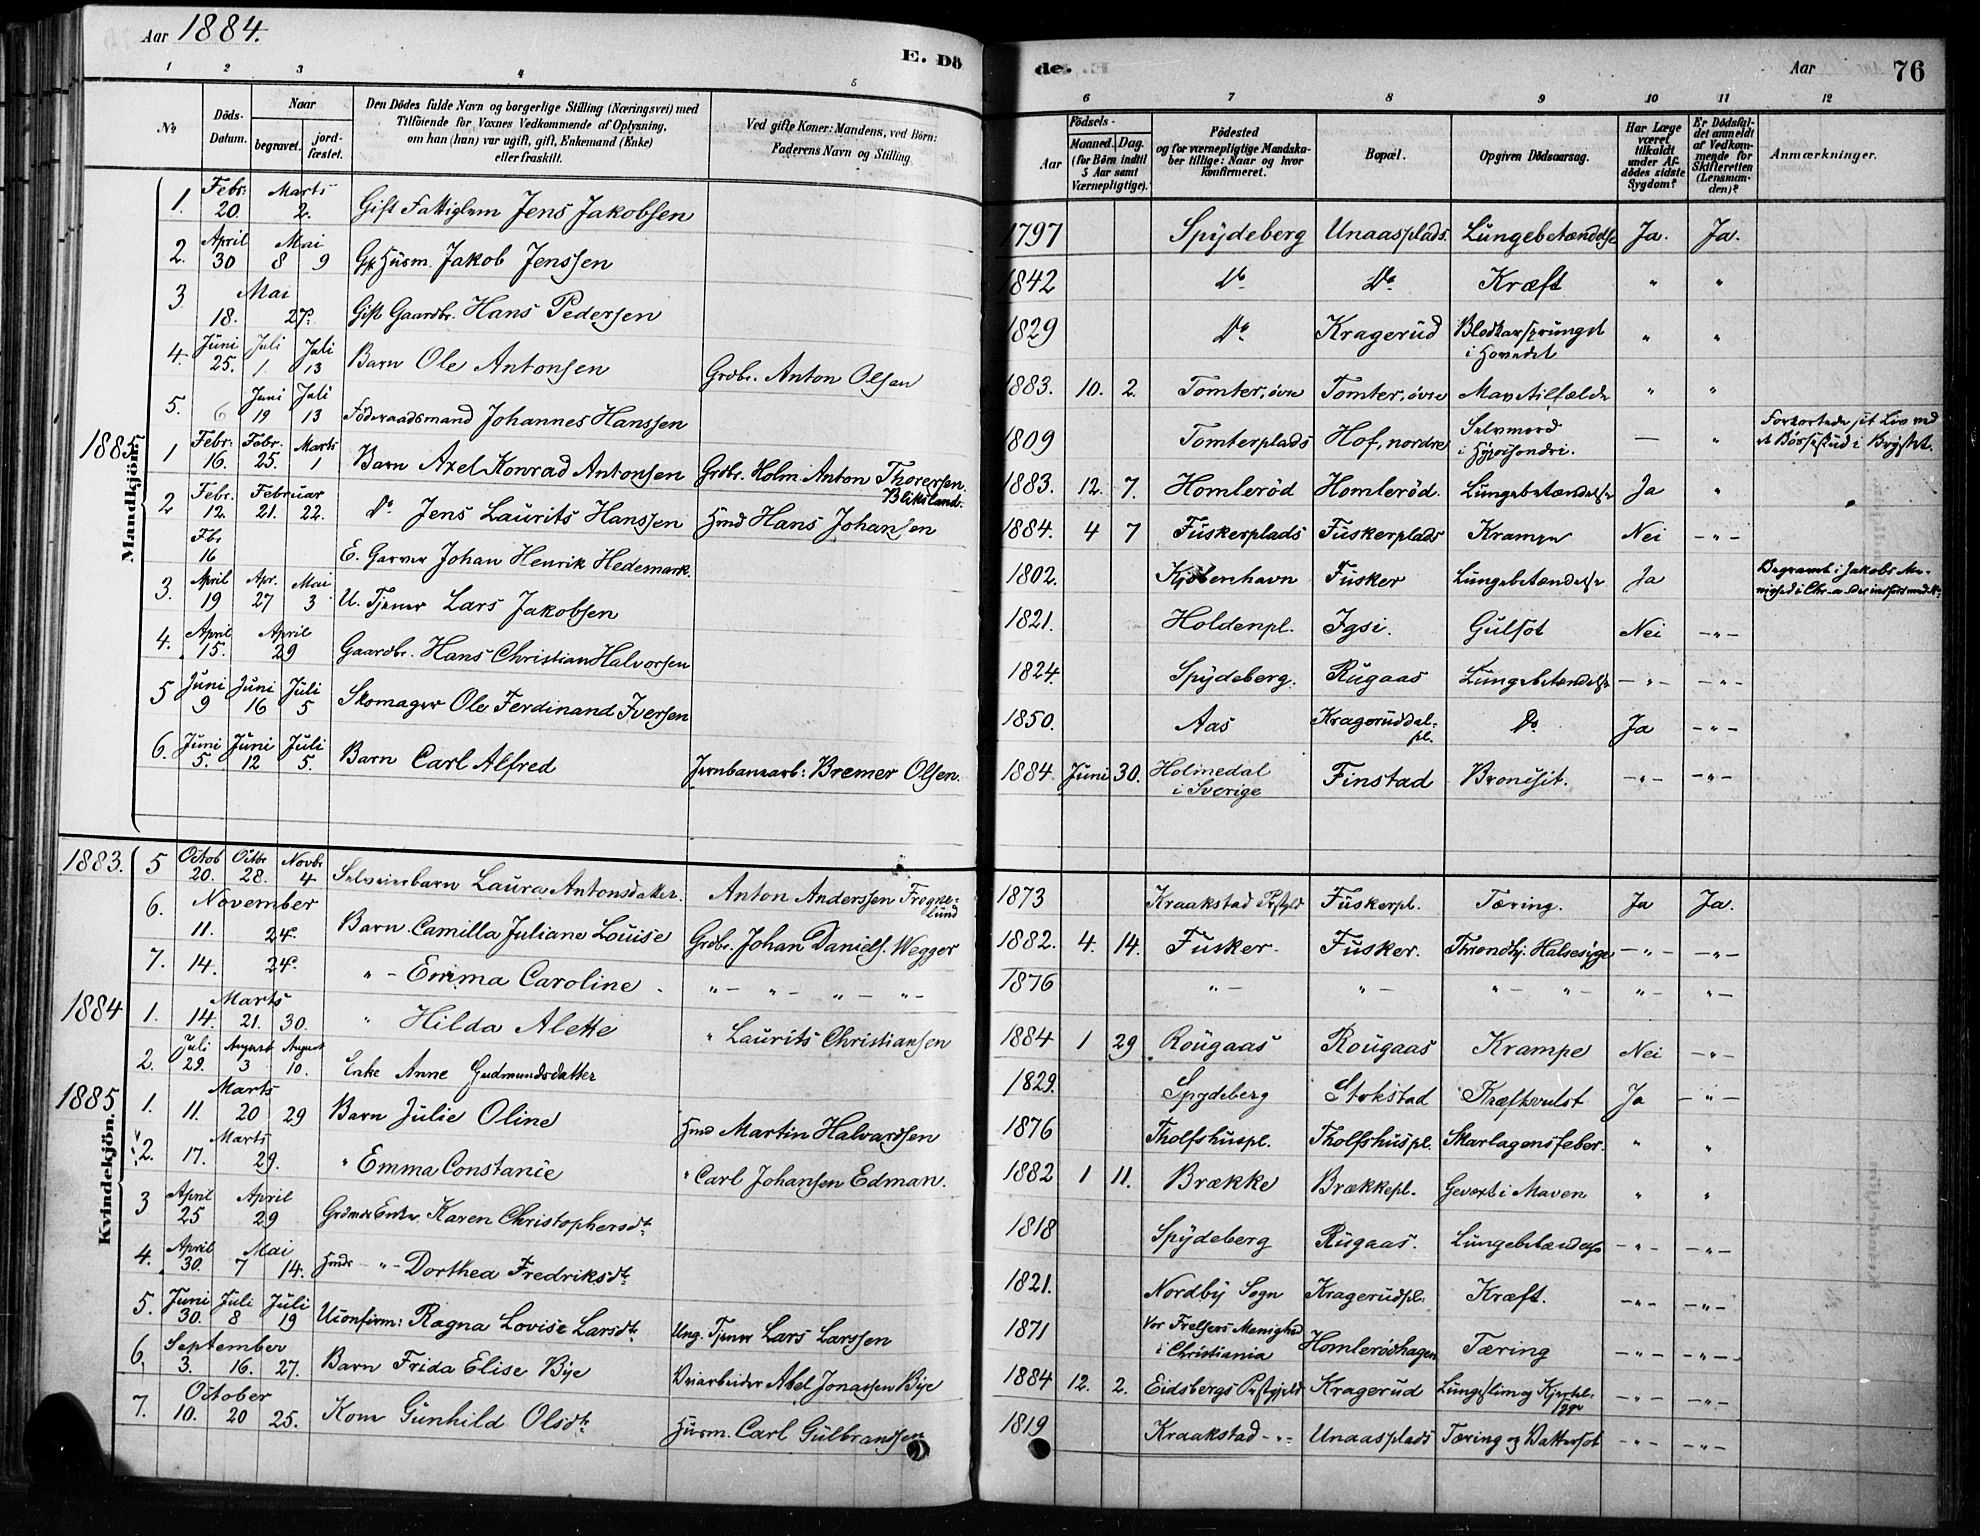 Aar 1884.
E. Dö
de.
Aar
76
1 2 3 4 5
6 7 8 9 10 11 12
No
Döds-Datum.
Naar
begravet.
jord-fæstet.
Den Dödes fulde Navn og borgerlige Stilling (Næringsvei) med
Tilföiende for Voxnes Vedkommende af Oplysning,
om han (hun) var ugift, gift, Enkemand (Enke)
eller fraskilt.
Ved gifte Koner: Mandens, ved Börn:
Faderens Navn og Stilling.
Födsels-
Aar
Maaned. Dag.
(for Börn indtil
5 Aar samt
Værnepligtige).
Födested
og for værnepligtige Mandska-
ber tillige: Naar og hvor
konfirmeret.
Bopæl.
Opgiven Dödsaarsag.
Har Læge
været
tilkaldt
under Af-
dödes sidste
Sygdom?
Er Dödsfal-
det anmeldt
af Vedkom-
mende for
Skifteretten
(Lensman-
den)?
Anmærkninger.
Mandkjön.
1. Febr. 20. Marts 2. Gift Fattiglem Jens Jakobsen 1797 Spydeberg Unaasplads. Lungebetændelse Ja. Ja.
2. April 30 Mai 8 9 Gft Husm. Jakob Jenssen 1842 Do Do Kræft " "
3 Mai 18. 27. Gift Gaardbr. Hans Pedersen 1829 Do Kragerud Blodkarsprunget i Hovedet " "
4. Juni 25. Juli 1. Juli 13 Barn Ole Antonsen Grdbr. Anton Olsen 1883. 10. 2. Tomter, övre Tomter, övre Mavetilfælde " "
5. 6 Juni 19 Juli 13 Föderaadsmand Johannes Hanssen 1809 Tomterplads Hof, nordre Selvmord i — " Forkortede sit Liv ved et Bösseskud i Brystet.
1885
1 Febr. 16. Febr. 25. Marts 1 Barn Axel Konrad Antonsen Grdbr. Holm Anton Thoresen Bliksland. 1883. 12. 7. Homleröd Homleröd. Lungebetændelse Ja "
2 Febr. 12. Februar 21. 22. Do Jens Laurits Hanssen Hmd Hans Johansen 1884. 4 7 Fuskerplads Fuskerplads Krampe Nei - " -
Fbr. 16 E. Garver Johan Henrik Hedemark. 1802. Kjöbenhavn Fusker Lungebetændelse Ja Begravet i Jakobs
3. April 19 Apr. 27 Mai 3 U. Tjener Lars Jakobsen 1821. Holdenpl. Igsi. Gulsot Nei - " -
4. April 15. April 29 Gaardbr. Hans Christian Halvorsen 1824. Spydeberg. Rugaas Lungebetændelse - " - - " -
5 Juni 9 Juni 16 Juli 5 Skomager Ole Ferdinand Iversen 1850. Aas Krageruddal. pl. Do. Ja - " -
6. Juni 5. Juni 12 Juli 5. Barn Carl Alfred Jernbanearb: Bremer Olsen. 1884. Juni 30. Holmedal i Sverige Finstad Bronchit. - " - - " -
Kvindekjön.
1883. 5 Octob 20. Octbr 28. Novbr 4 Selveierbarn Laura Antonsdatter. Anton Anderssen Frognelund 1873 Kraakstad Prstgjld Fuskerpl. Tæring. Ja Ja.
6. November 11. 24. Barn. Camilla Juliane Louise Grdbr. Johan Daniels. Wegger 1882. 4. 14. Fusker. Fusker. Halsesyge - " - - " -
7. 14. 24. " - Emma Caroline - " - " - " - " - 1876 " - " - " - " - " - " -
1884 1. Marts 14. 21. 30. " Hilda Alette " Laurits Christiansen 1884 1 29 Rougaas Rougaas Krampe Nei - " -
2. Juli 29. August 3 August 10. Enke Anne Gudmundsdatter 1829. Spydeberg Stokstad Kræftsvulst Ja - " -
1885 1. Marts 11. 20 29 Barn Julie Oline Hmd Martin Halvardsen 1876 Tholfshuspl. Tholfshuspl. Skarlagensfeber. " "
2. Marts 17. 29. " Emma Constance " Carl Johansen Edman. 1882 1 11. Brække Brækkepl. Gevext i Maven " "
3 April 25 April 29 Karen Christophersdt. 1818 Spydeberg Rugaas. Lungebetændelse - " - - " -
4. April 30. Mai 7 14. Hmds - " - Dorthea Fredriksdt. 1821. Nordby Sogn Kragerudpl. Kræft. - " - - " -
5. Juni 30. Juli 8 Juli 19 Uconfirm: Ragna Lovise Larsdt. Ung. Tjener Lars Larssen 1871 Vor Frelsers Menighed i Christiania Homlerödhagen Tæring - " - - " -
6. September 3. 16. 27. Barn Frida Elise Bye Veiarbeider Abel Jonassen Bye 1884 12. 2. Eidsbergs Prstgjeld Kragerud - " - - " -
7. October 10. 20 25. Kone Gunhild Olsdt. Husm. Carl Gulbrandsen 1819 Kraakstad - " - Unaasplads Tæring og Vattersot - " - - " -